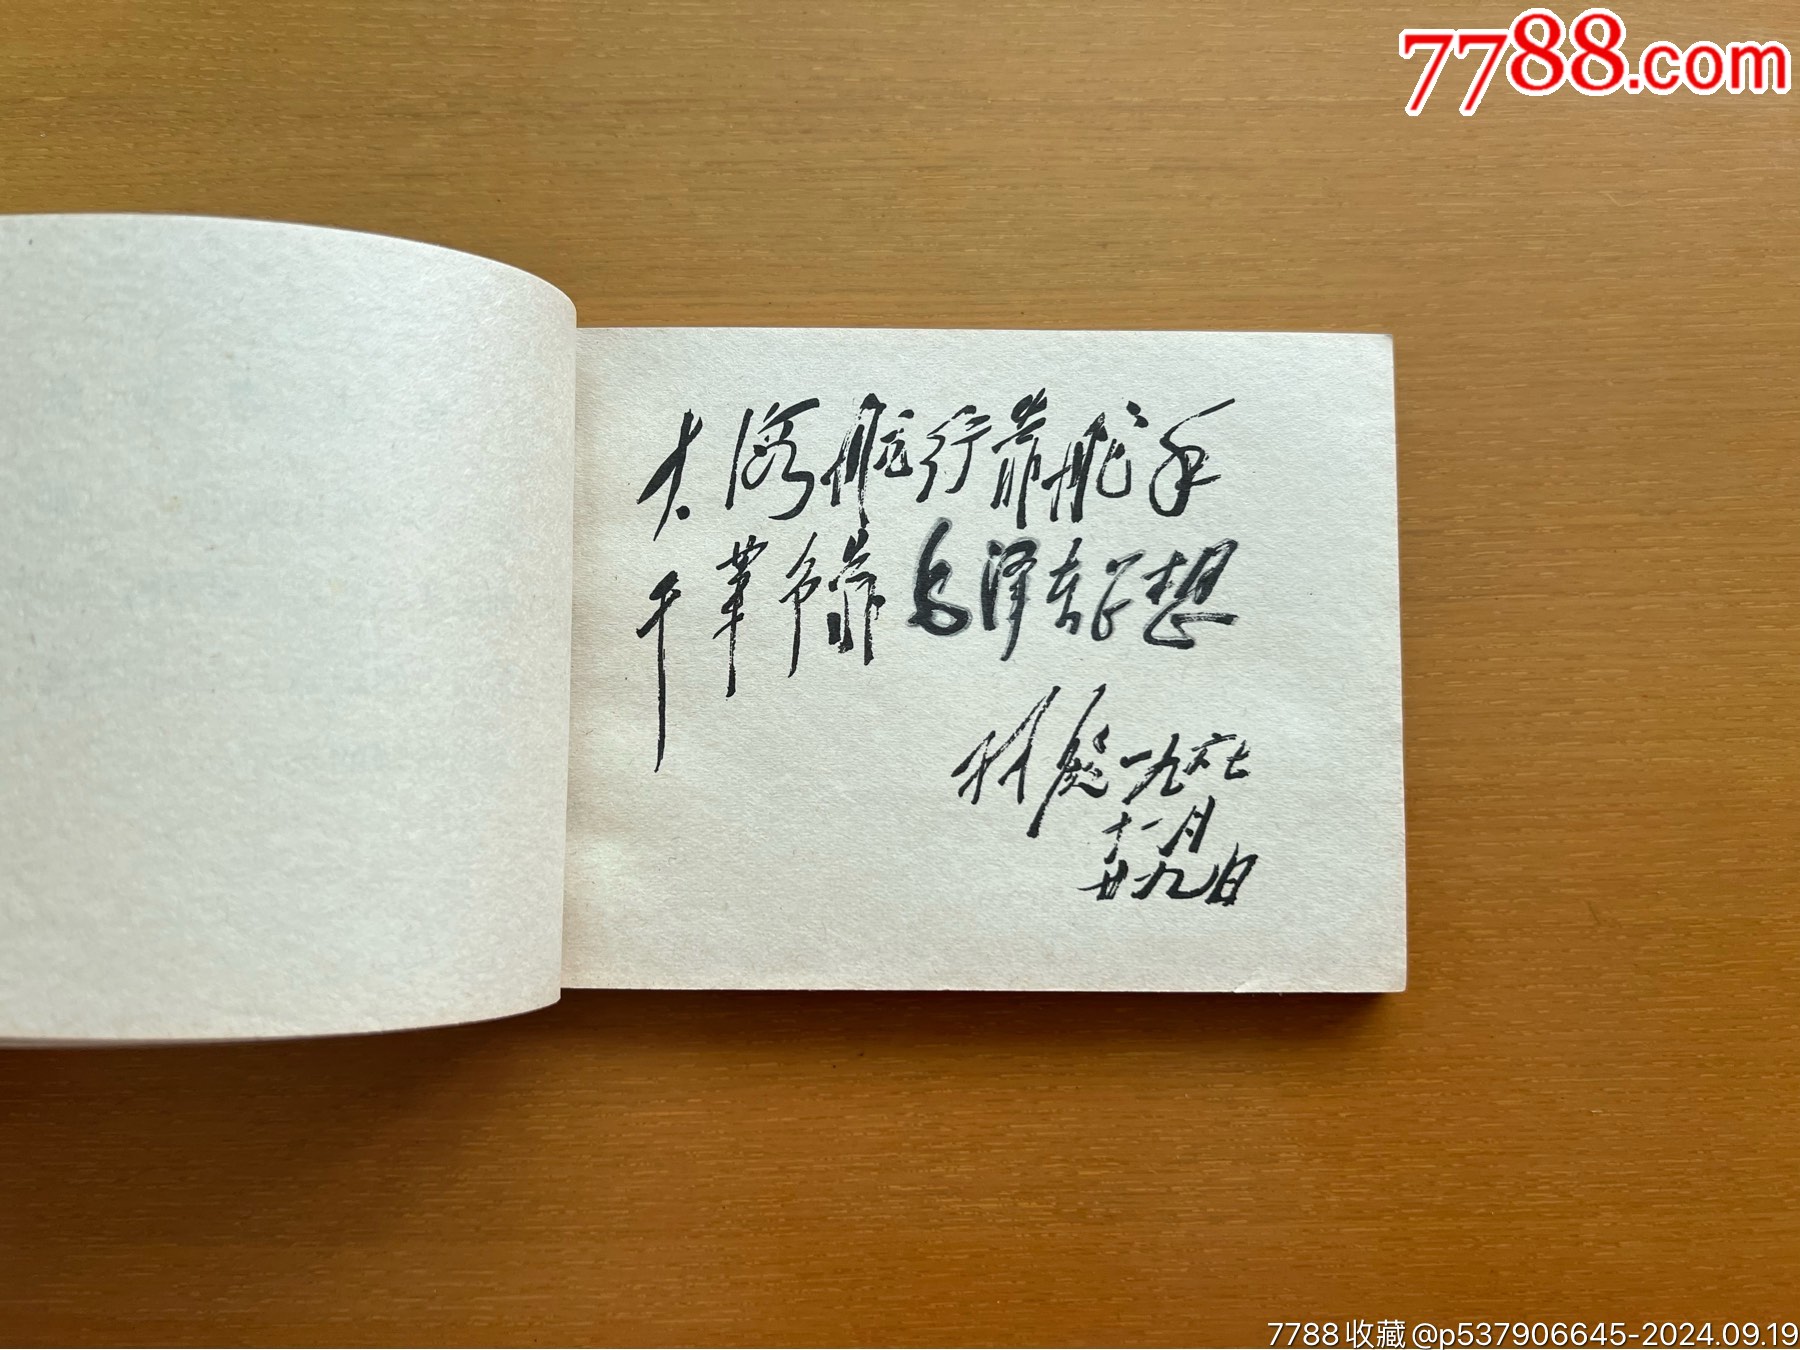 7788.com
大海航行靠舵手
干革命靠毛泽东思想
林彪一九六七
十一月
廿九日
7788收藏@p537906645-2024.09.19